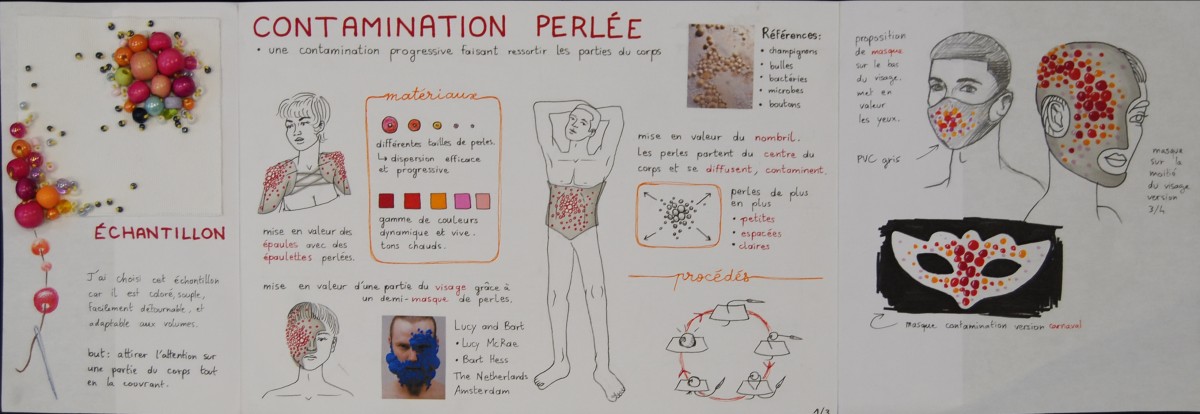 CONTAMINATION PERLÉE
• une contamination progressive faisant ressortir les parties du corps
ÉCHANTILLON
J'ai choisi cet échantillon
car il est coloré, souple,
facilement détournable, et
adaptable aux volumes.
but: attirer l'attention sur
une partie du corps tout
en la couvrant.
mise en valeur des
épaules avec des
épaulettes perlées.
matériaux
différentes tailles de perles.
↳ dispersion efficace
et progressive
gamme de couleurs
dynamique et vive.
tons chauds.
mise en valeur d'une partie du visage grâce à
un demi-masque de perles.
Lucy and Bart
• Lucy McRae
• Bart Hess
The Netherlands
Amsterdam
Références:
• champignons
• bulles
• bactéries
• microbes
• boutons
mise en valeur du nombril.
Les perles partent du centre du
corps et se diffusent, contaminent.
perles de plus
en plus
• petites
• espacées
• claires
procédés
1/3
proposition
de masque
sur le bas
du visage.
met en
valeur
les yeux.
PVC gris
masque
sur la
moitié
du visage
version
3/4
masque contamination version carnaval